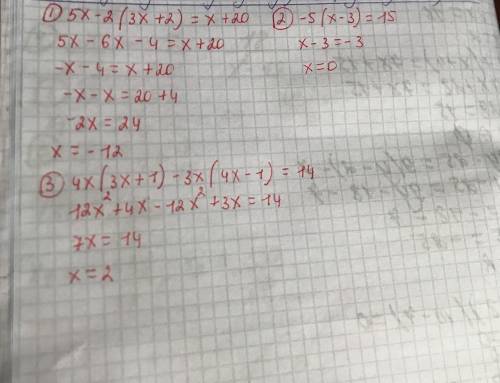 ① 5x-2(3x+2)=x+20
5x-6x-4=x+20
-x-4=x+20
-x-x=20+4
-2x=24
x=-12
② -5(x-3)=15
x-3=-3
x=0
③ 4x(3x+1)-3x(4x-1)=14
12x²+4x-12x²+3x=14
7x=14
x=2